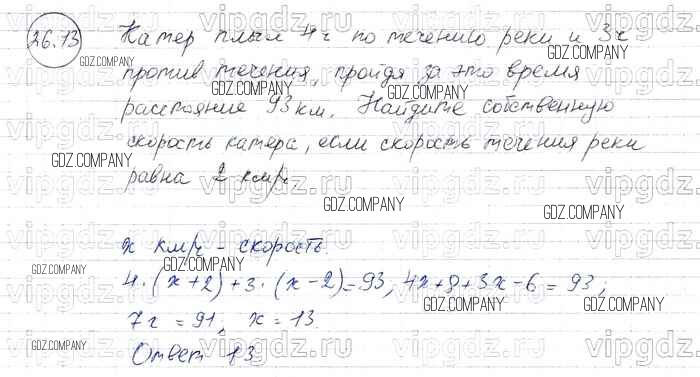 26.13 Катер плыл 4ч по течению реки и 3ч
против течения, пройдя за это время
расстояние 93 км. Найдите собственную
скорость катера, если скорость течения реки
равна 2 км/ч
x км/ч - скорость.
4·(x+2)+3·(x-2)=93, 4x+8+3x-6=93,
7x=91, x=13.
Ответ 13
GDZ.COMPANY
vipgdz.ru